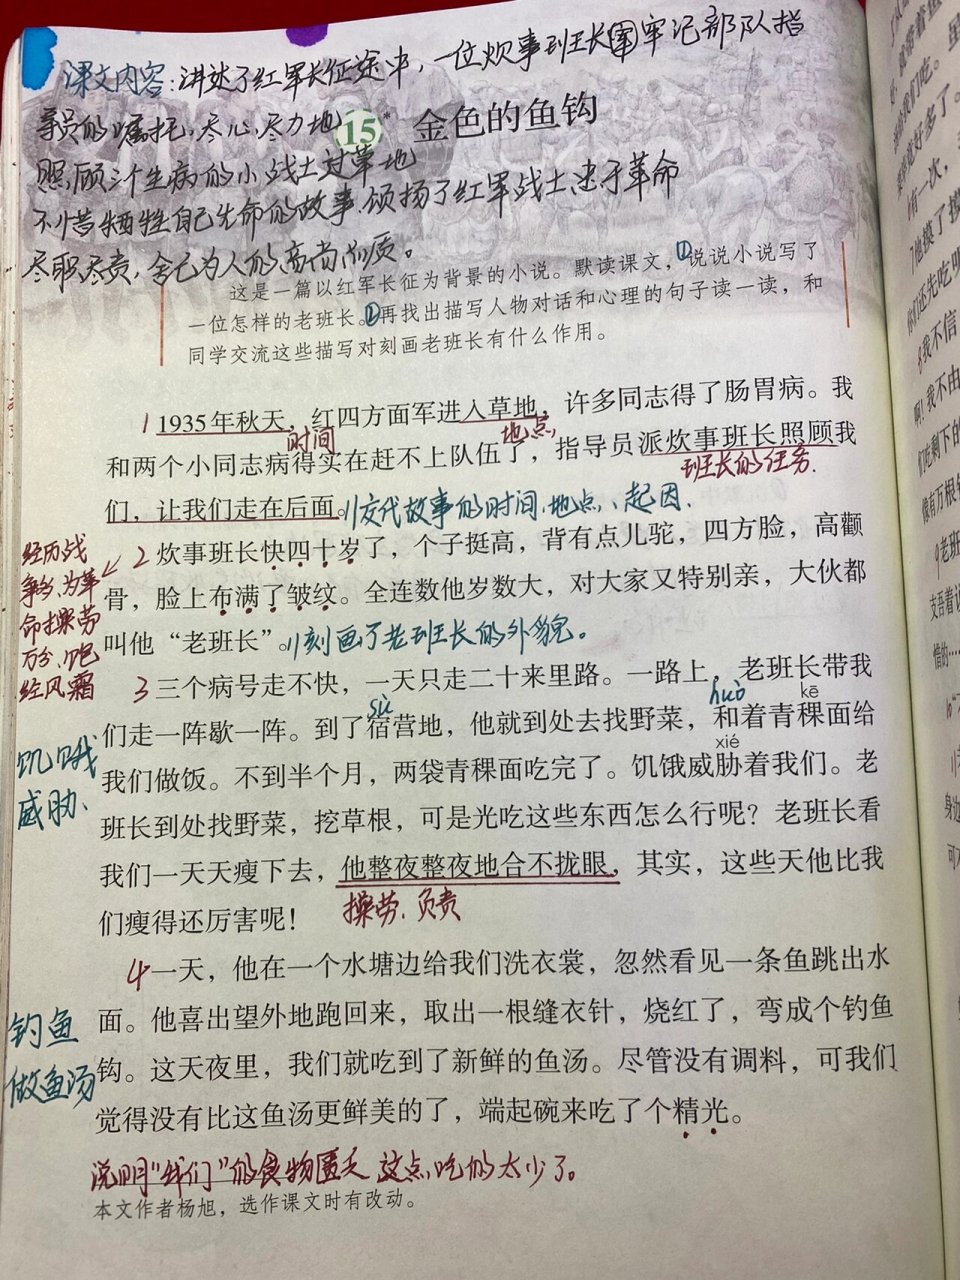 课文内容：讲述了红军长征途中，一位炊事班长牢记部队指
导员的嘱托，尽心、尽力地
照顾三个生病的小战士过草地
不惜牺牲自己生命的故事.颂扬了红军战士忠于革命
尽职尽责，舍己为人的高尚品质。
15* 金色的鱼钩
这是一篇以红军长征为背景的小说。默读课文，①说说小说写了
一位怎样的老班长。②再找出描写人物对话和心理的句子读一读，和
同学交流这些描写对刻画老班长有什么作用。
1 1935年秋天，红四方面军进入草地，许多同志得了肠胃病。我
时间 地点
和两个小同志病得实在赶不上队伍了，指导员派炊事班长照顾我
班长的任务.
们，让我们走在后面。//交代故事的时间、地点、起因.
经历战
争多、为革
命操劳
万分、饱
经风霜
2 炊事班长快四十岁了，个子挺高，背有点儿驼，四方脸，高颧
骨，脸上布满了皱纹。全连数他岁数大，对大家又特别亲，大伙都
叫他“老班长”。//刻画了老班长的外貌。
3 三个病号走不快，一天只走二十来里路。一路上，老班长带我
sù huò kē
们走一阵歇一阵。到了宿营地，他就到处去找野菜，和着青稞面给
xié
饥饿
威胁、
我们做饭。不到半个月，两袋青稞面吃完了。饥饿威胁着我们。老
班长到处找野菜，挖草根，可是光吃这些东西怎么行呢？老班长看
我们一天天瘦下去，他整夜整夜地合不拢眼，其实，这些天他比我
们瘦得还厉害呢！
操劳、负责
4 一天，他在一个水塘边给我们洗衣裳，忽然看见一条鱼跳出水
钓鱼
做鱼汤
面。他喜出望外地跑回来，取出一根缝衣针，烧红了，弯成个钓鱼
钩。这天夜里，我们就吃到了新鲜的鱼汤。尽管没有调料，可我们
觉得没有比这鱼汤更鲜美的了，端起碗来吃了个精光。
说明“我们”的食物匮乏 这点吃的太少了。
本文作者杨旭，选作课文时有改动。